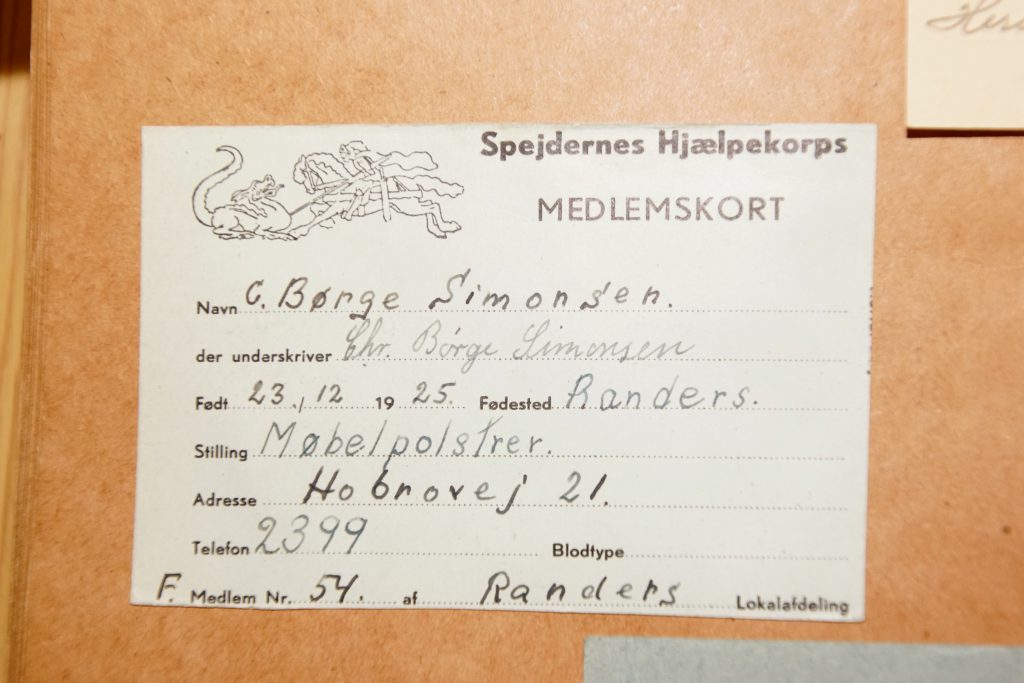 Spejdernes Hjælpekorps
MEDLEMSKORT
Navn C. Børge Simonsen.
der underskriver Chr. Børge Simonsen
Født 23./12 1925. Fødested Randers.
Stilling Møbelpolstrer.
Adresse Hobrovej 21.
Telefon 2399 Blodtype
F. Medlem Nr. 54. af Randers Lokalafdeling